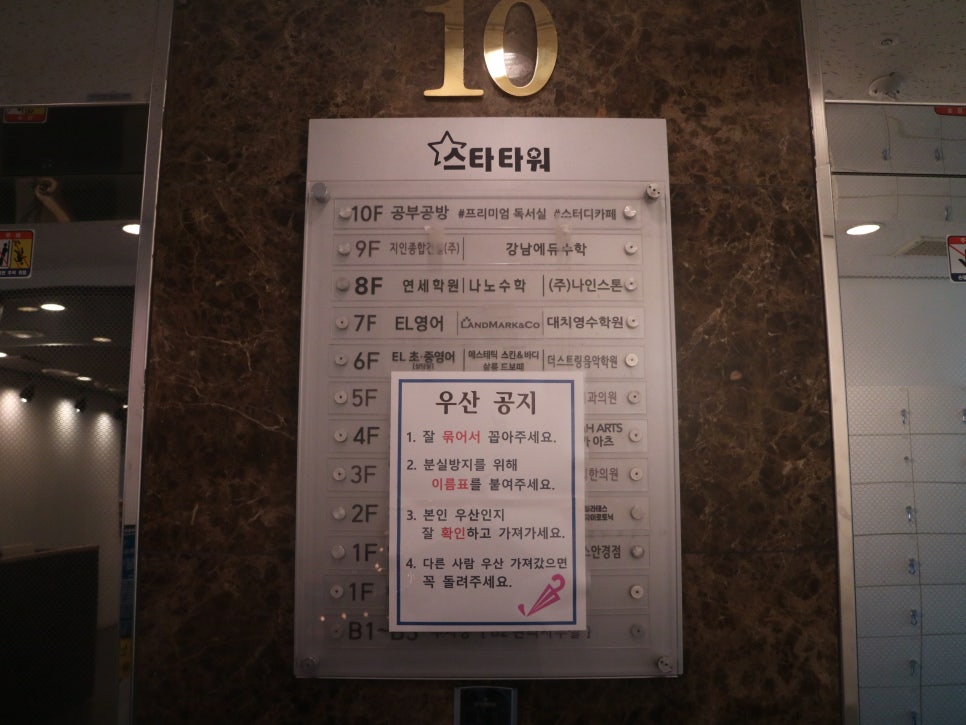 10
스타타워
10F 공부공방 #프리미엄 독서실 #스터디카페
9F 지인종합건설(주) 강남에듀수학
8F 연세학원 나노수학 (주)나인스톤
7F EL영어 LANDMARK&CO 대치영수학원
6F EL 초·중영어 에스테틱 스킨&바디 더스트링음악학원
살롱 드보떼
5F 과의원
4F AH ARTS
아츠
3F 한의원
2F 필라테스
자이로토닉
1F 스안경점
1F
B1~B3
우산 공지
1. 잘 묶어서 꼽아주세요.
2. 분실방지를 위해
이름표를 붙여주세요.
3. 본인 우산인지
잘 확인하고 가져가세요.
4. 다른 사람 우산 가져갔으면
꼭 돌려주세요.